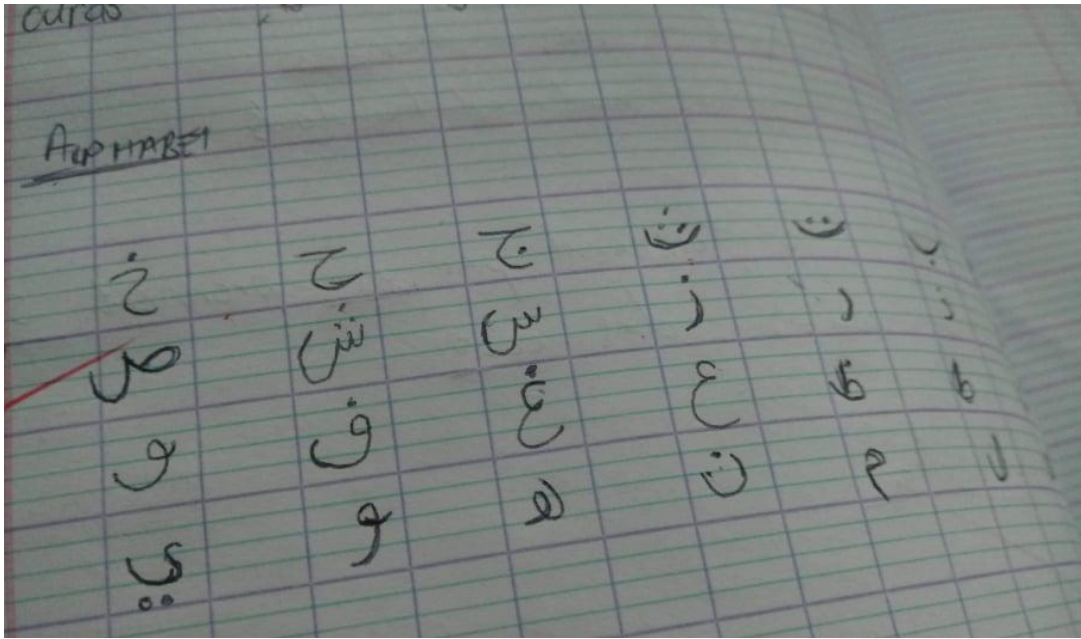 ALPHABET
ب ت ث ج ح خ
ذ ر ز س ش ص
ط ظ ع غ ف و
ل م ن ه و ي